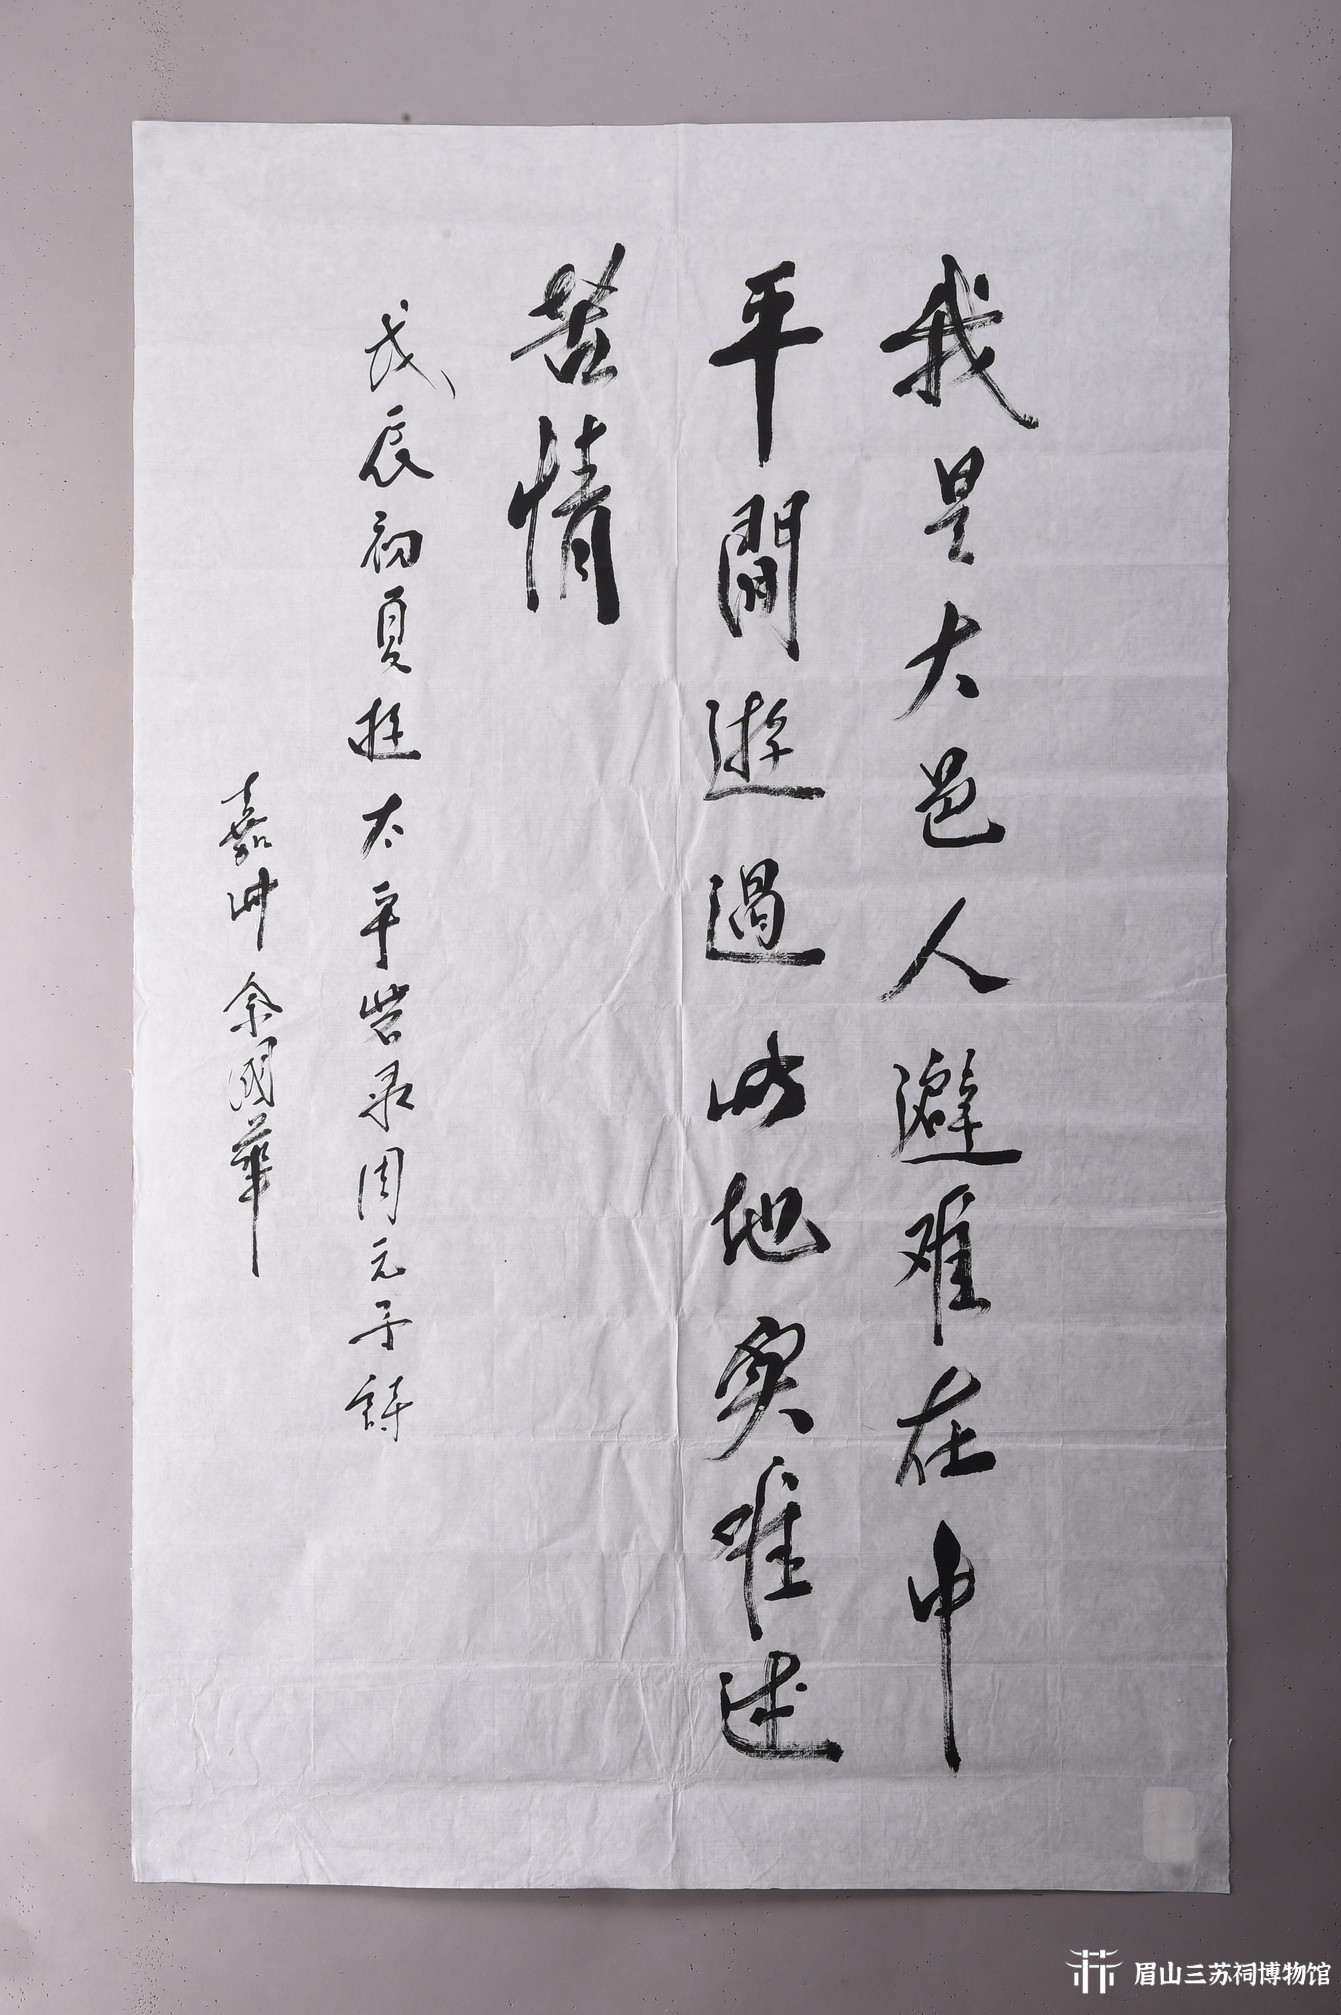 我是大邑人避难在中
平閒遊過此地实难述
苦情
戊辰初夏遊太平岩录周元子詩
嘉州余國華
眉山三苏祠博物馆